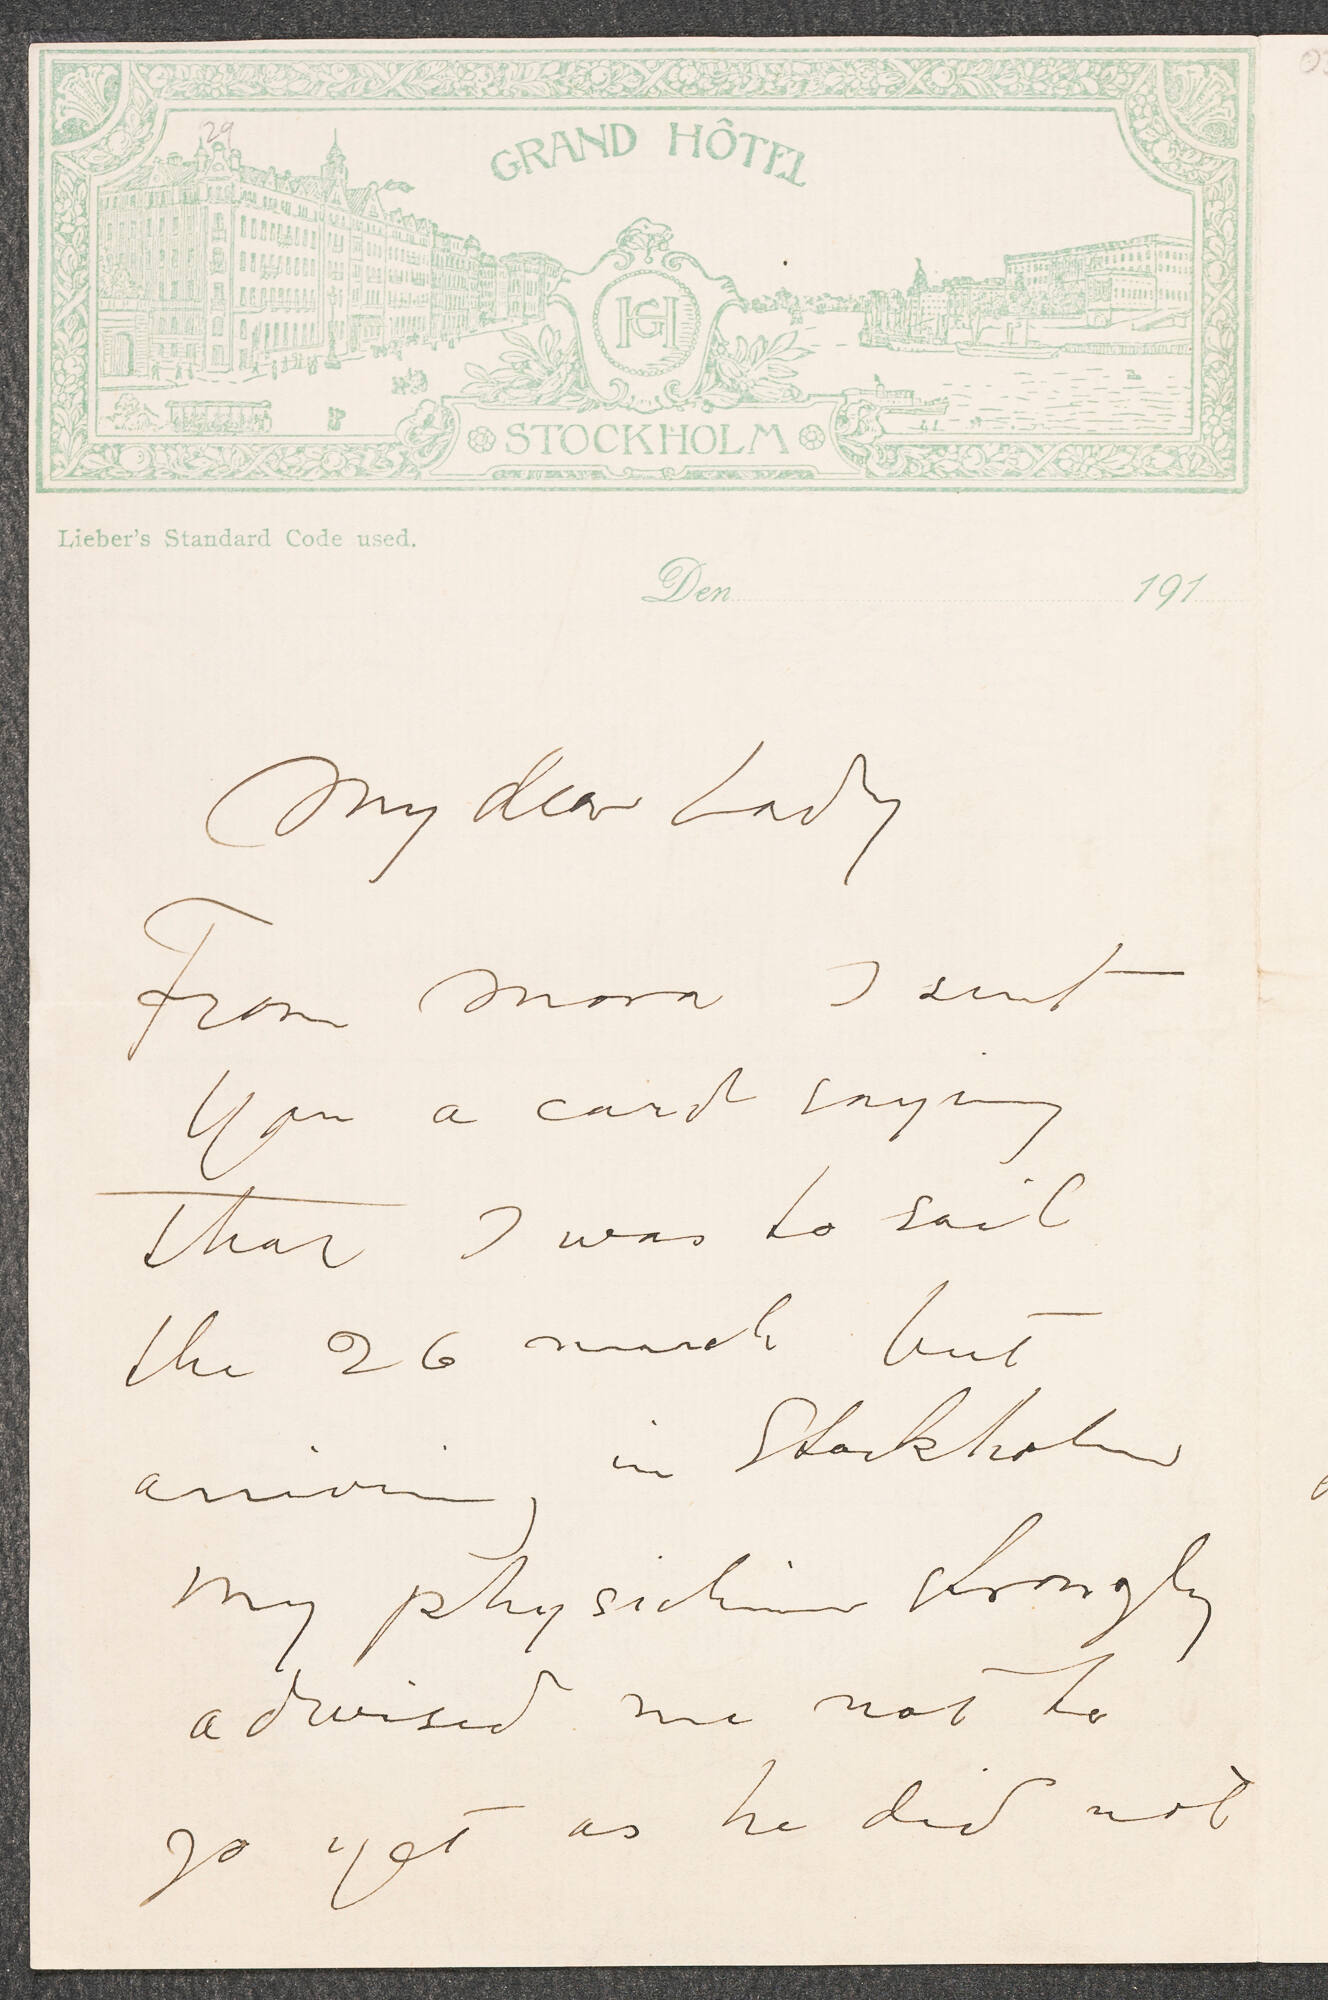 29
GRAND HÔTEL
HG
STOCKHOLM
Lieber's Standard Code used.
Den 191
My dear Lady
From Mora I sent
you a card saying
that I was to sail
the 26 march but
arriving in Stockholm
my physician strongly
advised me not to
go yet as he did not